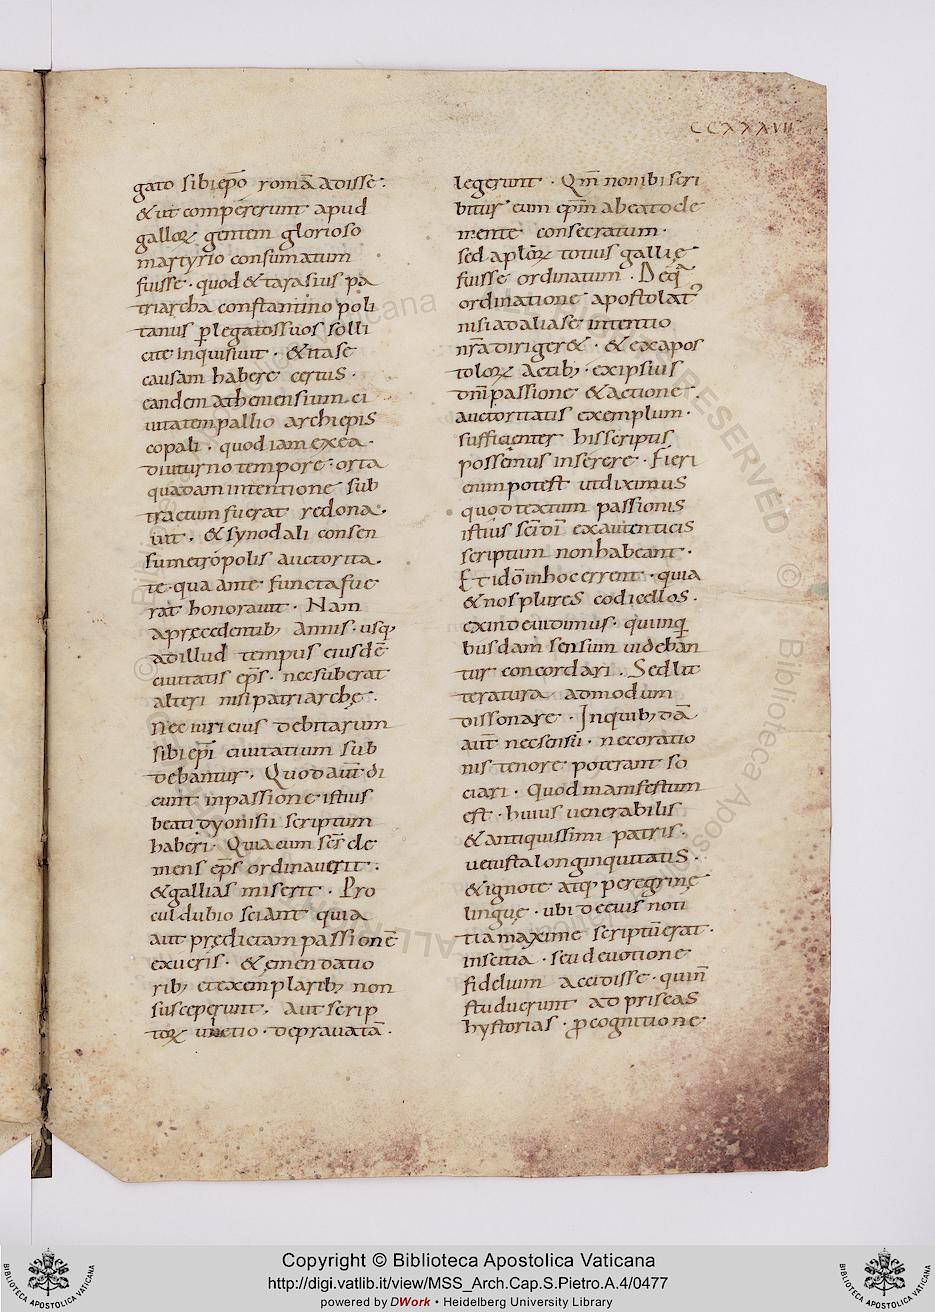 CCXXXVII
gato sibi ep̄o romā adisse·
& ut compererunt apud
galloꝝ gentem glorioso
martyrio consumatum
fuisse · quod & tarasius pa
triarcha constantino poli
tanus p̲ legatos suos solli
cite inquisiuit · & ita se
causam habere certus ·
eandem atheniensium ci
uitatem pallio archiepis
copali · quod iam ex ea ·
diuturno tempore · orta
quadam intentione sub
tractum fuerat redona·
uit · & synodali consen
su metropolis auctorita·
te · qua ante functa fue
rat honorauit · Nam
a precedentib; annis · usq;
ad illud tempus eiusdē
ciuitatis ep̄s · nec suberat
alteri nisi patriarchę ·
Nec iuri eius debitarum
sibi ep̄i ciuitatium sub
debantur · Quod aut̄ di
cunt in passione istius
beati dyonisii scriptum
haberi · Quia eum sc̄s cle
mens ep̄s ordinauerit ·
& gallias miserit · Pro
cul dubio sciant quia
aut predictam passionē
exueris · & ęmendatio
rib; et exemplarib; non
susceperunt · Aut scrip
toꝝ uitio · deprauatā ·
legerunt · Qm̄ non ibi scri
bitur eum ep̄m a beato cle
mente consecratum ·
sed ap̄loꝝ totius gallię
fuisse ordinatum · De q̄
ordinatione apostolat᾽
nisi ad alia se intentio
nr̄a dirigere& · & ex apos
toloꝝ actib; · ex ipsius
dn̄i passione & actione ·
auctoritatis exemplum ·
sufficienter his scriptis
possemus inserere · Fieri
enim potest ut diximus
quod textum passionis
istius sc̄i dī ex autenticis
scriptum non habeant ·
Et idō in hoc errent · quia
& nos plures codicellos ·
exinde uidimus · qui in q̄
busdam sensum uideban
tur concordari · Sed lit
teratura admodum
dissonare · In quib; dā
aut̄ nec sensu · nec oratio
nis tenore poterant so
ciari · Quod manifestum
est · huius uenerabilis
& antiquissimi patris ·
uetusta longinquitatis ·
& ignote atq; peregrinę
linguę · ubi de eius noti
tia maxime scriptū erat ·
inscitia · seu deuotione
fidelium accidisse · qui n̄
studuerunt ad priscas
hystorias · p̲cognitione·
Copyright © Biblioteca Apostolica Vaticana
http://digi.vatlib.it/view/MSS_Arch.Cap.S.Pietro.A.4/0477
powered by DWork • Heidelberg University Library